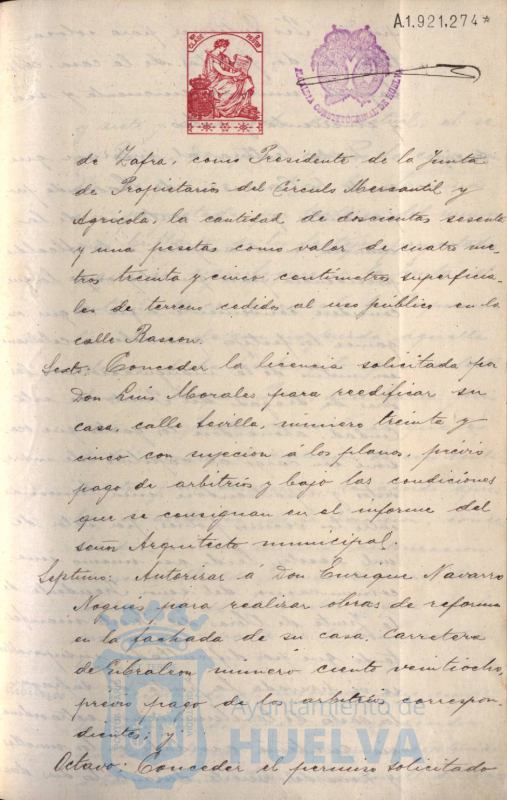 A.1.921.274*
ALCALDIA CONSTITUCIONAL DE HUELVA
de Zafra, como Presidente de la Junta
de Propietarios del Círculo Mercantil y
Agrícola, la cantidad de doscientas sesenta
y una pesetas como valor de cuatro me-
tros treinta y cinco centímetros superficia-
les de terreno cedidos al uso público en la
calle Rascon.
Sexto: Conceder la licencia solicitada por
Don Luis Morales para reedificar su
casa, calle Sevilla, número treinta y
cinco con sujecion á los planos, previo
pago de arbitrios y bajo las condiciones
que se consignan en el informe del
señor Arquitecto municipal.
Septimo: Autorizar á Don Enrique Navarro
Nogués para realizar obras de reforma
en la fachada de su casa, Carretera
de Gibraleon número ciento veintiocho,
previo pago de los arbitrios correspon-
dientes; y
Octavo: Conceder el permiso solicitado
Ayuntamiento de
HUELVA